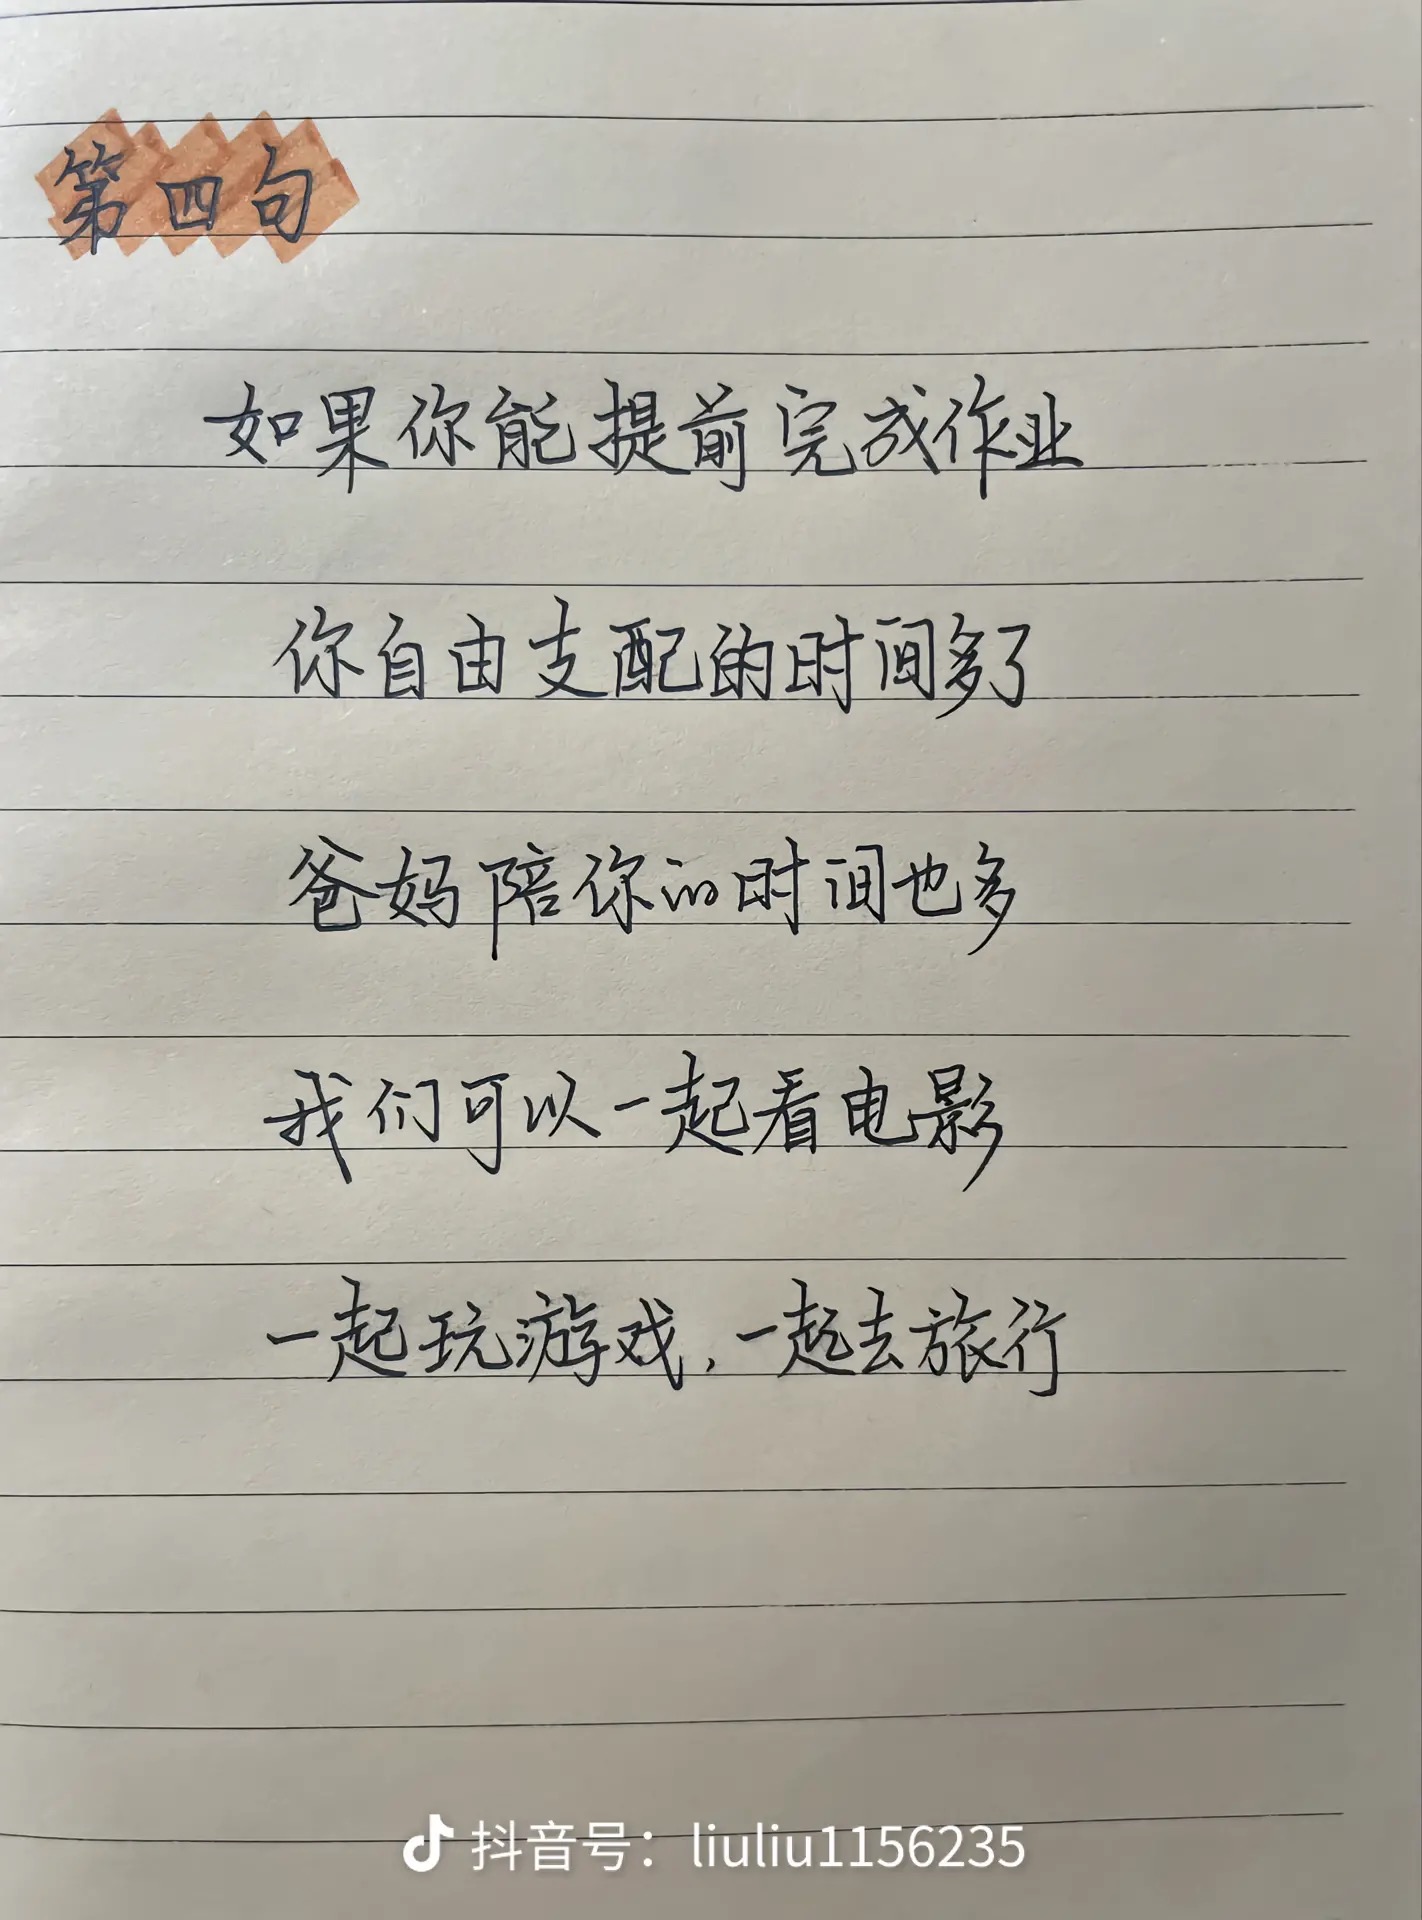 第四句
如果你能提前完成作业
你自由支配的时间多了
爸妈陪你的时间也多
我们可以一起看电影
一起玩游戏,一起去旅行
抖音号：liuliu1156235